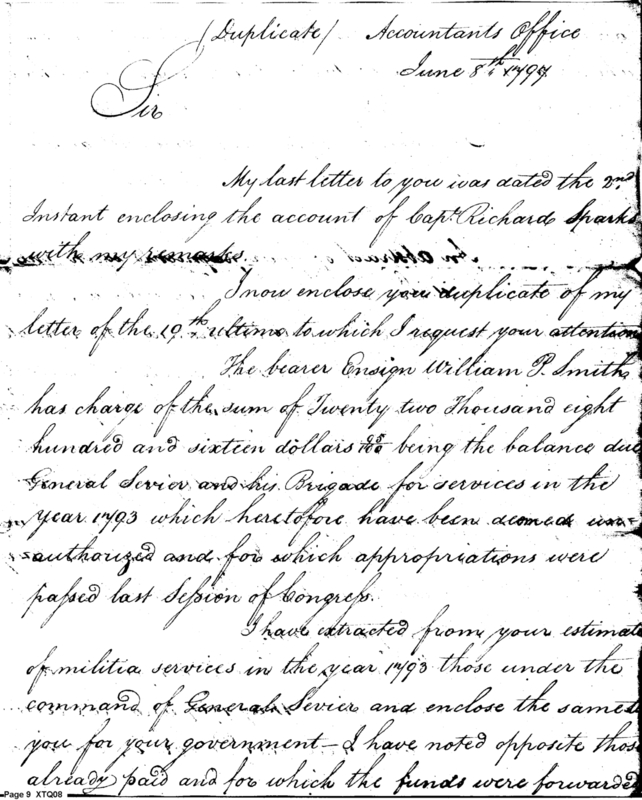 (Duplicate) Accountants Office
June 8th 1797
Sir
My last letter to you was dated the 2nd
Instant enclosing the account of Capt. Richard Sparks
with my remarks.
I now enclose you duplicate of my
letter of the 19th ultimo to which I request your attention
The bearer Ensign William P. Smith
has charge of the sum of Twenty two Thousand eight
hundred and sixteen dollars being the balance due
General Sevier and his Brigade for services in the
year 1793 which heretofore have been deemed un-
authorized and for which appropriations were
passed last Session of Congress.
I have extracted from your estimate
of militia services in the year 1793 those under the
command of General Sevier and enclose the same to
you for your government — I have noted opposite those
already paid and for which the funds were forwarded
Page 9 XTQ08